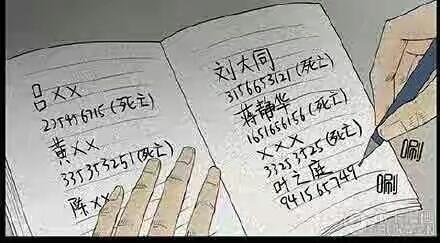 吕××
235456715(死亡)
黄××
335353251(死亡)
陈××
刘大同
3156653121(死亡)
蒋静华
1651656156(死亡)
×××
33253525(死亡)
叶之庭
941565749
唰
唰